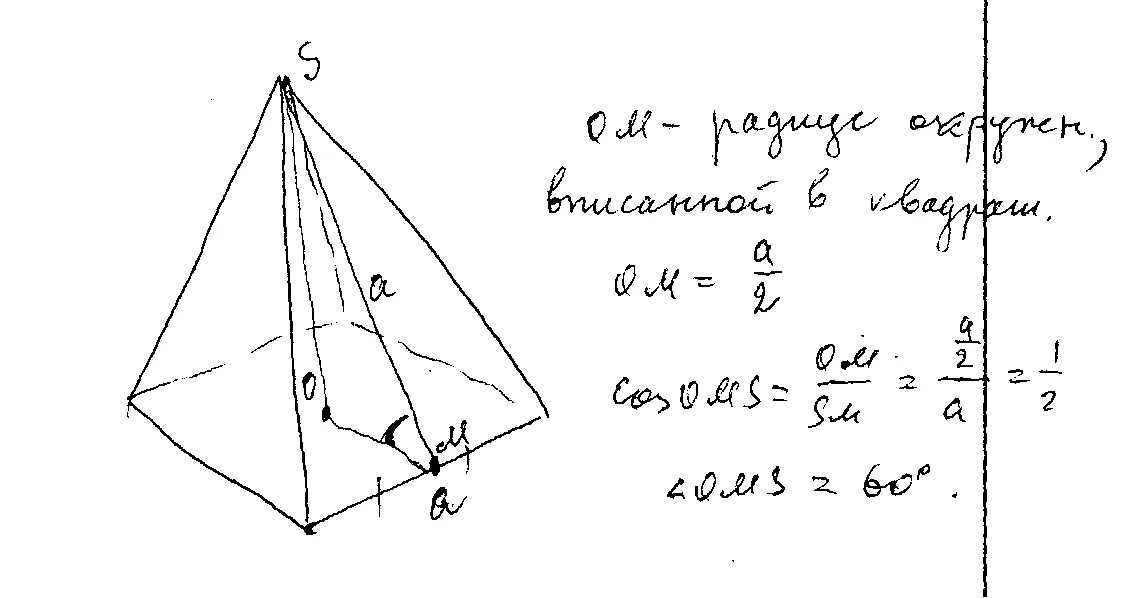 S
a
O
M
a
OM – радиус окружн.,
вписанной в квадрат.
OM = a/2
cos OMS = OM/SM = a/2/a = 1/2
∠OMS = 60°.